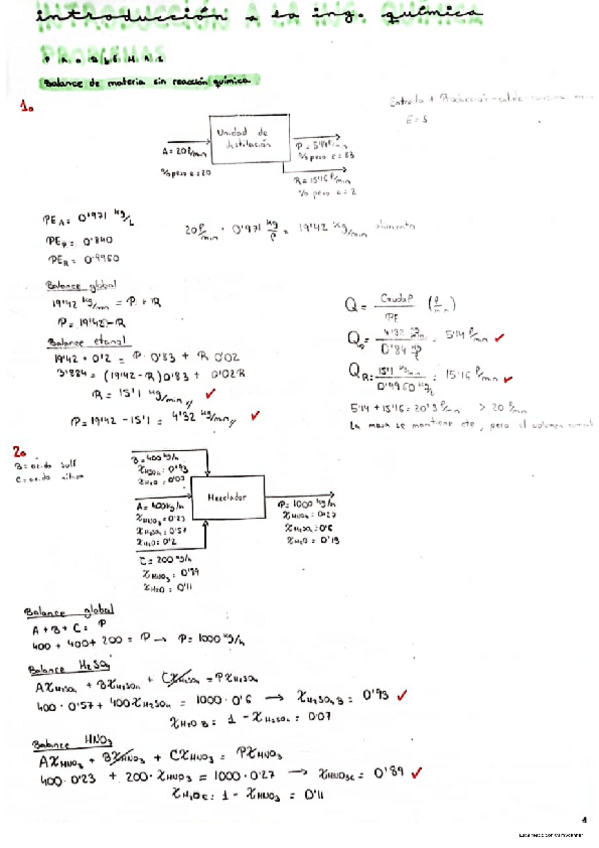 introducción a la ing. química
PROBLEMAS
Balance de materia sin reacción química
1.
E = S
Unidad de destilación
A = 20 l/min
% peso e = 20
% peso e = 83
R = 15'16 l/min
% peso e = 2
PE_A = 0'971 kg/L
PE_P = 0'840
PE_R = 0'9960
20 l/min · 0'971 kg/l = 19'42 kg/min alimento
Balance global
19'42 kg/min = P + R
P = 19'42 - R
Balance etanol
19'42 · 0'2 = P · 0'83 + R 0'02
3'884 = (19'42 - R) 0'83 + 0'02R
R = 15'1 kg/min ✓
P = 19'42 - 15'1 = 4'32 kg/min ✓
Q = Caudal / PE (l/min)
Q_P = 4'32 / 0'84 = 5'14 l/min ✓
Q_R = 15'1 kg/min / 0'9960 kg/L = 15'16 l/min ✓
5'14 + 15'16 = 20'3 l/min > 20 l/min
La masa se mantiene cte, pero el volumen
2.
B = ácido sulf
C = ácido nítrico
B = 400 kg/h
X H2SO4 = 0'93
X H2O = 0'07
Mezclador
A = 400 kg/h
X HNO3 = 0'23
X H2SO4 = 0'57
X H2O = 0'2
P = 1000 kg/h
X HNO3 = 0'27
X H2SO4 = 0'6
X H2O = 0'13
C = 200 kg/h
X HNO3 = 0'89
X H2O = 0'11
Balance global
A + B + C = P
400 + 400 + 200 = P → P = 1000 kg/h
Balance H2SO4
AX H2SO4 + BX H2SO4 + CX H2SO4 = PX H2SO4
400 · 0'57 + 400 X H2SO4 = 1000 · 0'6 → X H2SO4 B = 0'93 ✓
X H2O B = 1 - X H2SO4 = 0'07
Balance HNO3
AX HNO3 + BX HNO3 + CX HNO3 = PX HNO3
400 · 0'23 + 200 · X HNO3 = 1000 · 0'27 → X HNO3 C = 0'89 ✓
X H2O C = 1 - X HNO3 = 0'11